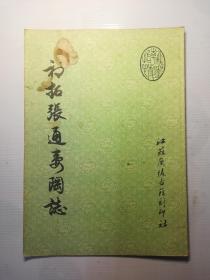 初拓張通妻陶誌
江蘇廣陵古籍刻印社